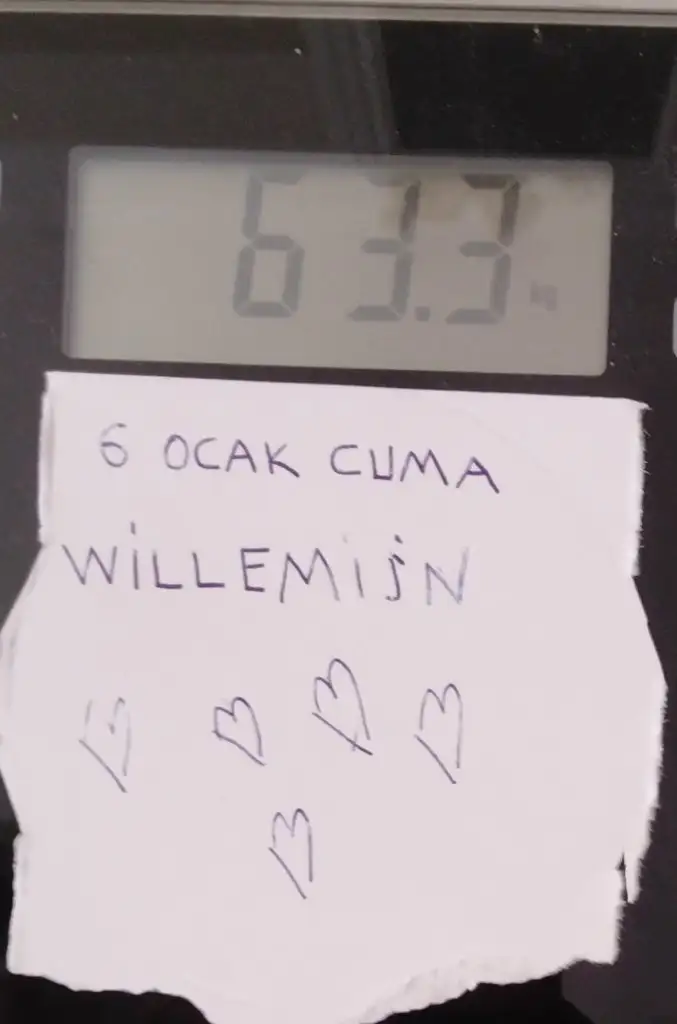 63.3 kg
6 OCAK CUMA
WİLLEMİJN